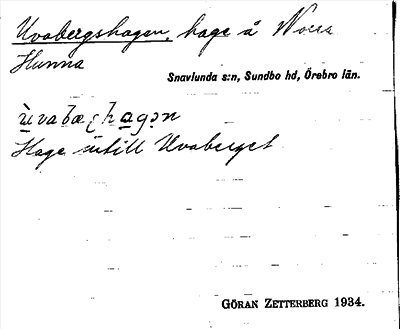 Uvabergshagen, hage å Norra
Hunna
Snavlunda s:n, Sundbo hd, Örebro län.
Hage intill Uvaberget.
GÖRAN ZETTERBERG 1934.